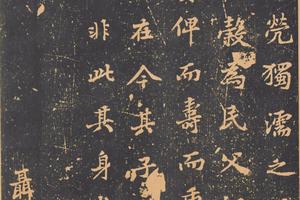 煢獨濡之
穀為民父
俾而壽而
在今其子
非此其身
聶